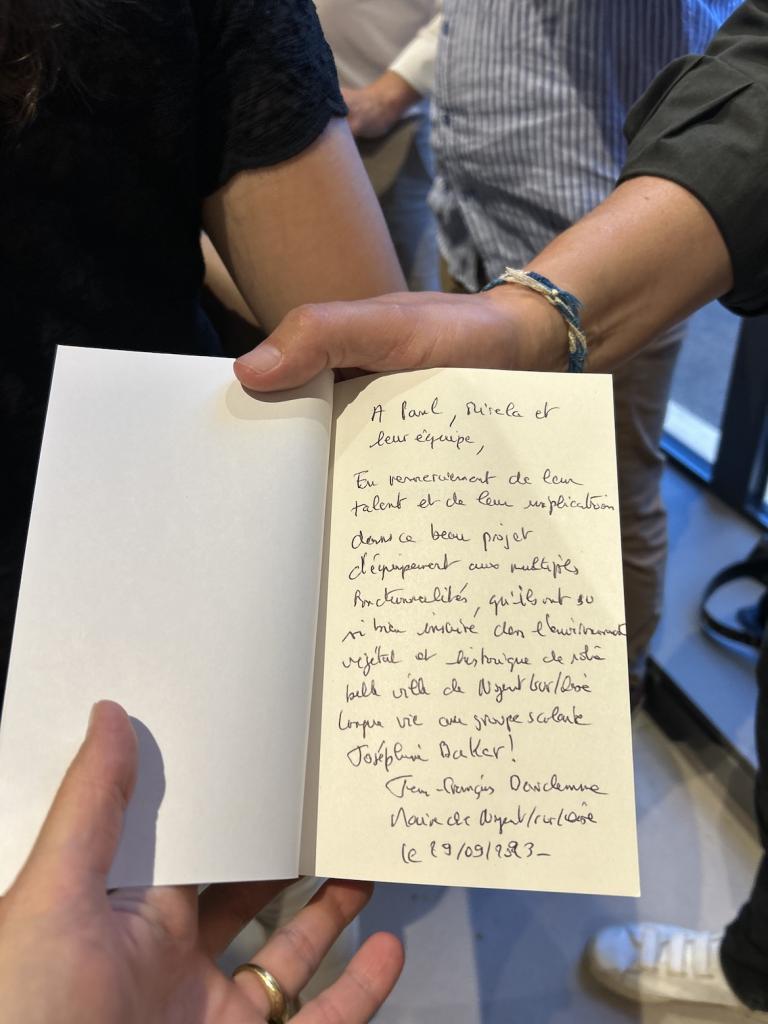 A Paul, Mirela et
leur équipe,
En remerciement de leur
talent et de leur implication
dans ce beau projet
d'équipement aux multiples
fonctionnalités, qu'ils ont su
si bien inscrire dans l'environnement
végétal et historique de notre
belle ville de Nogent/sur/Oise
Longue vie au groupe scolaire
Joséphine Baker!
Jean-François Dardenne
Maire de Nogent/sur/Oise
le 29/09/